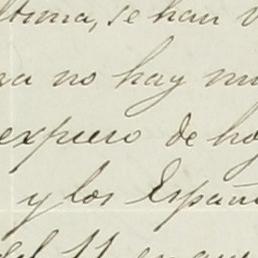 ltima, se han v
ra no hay m
expreso de ho
y los Españ
del 11 en que